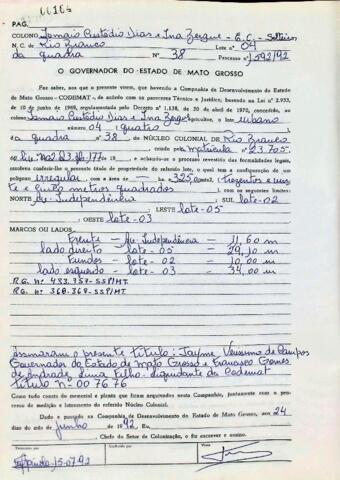 PAG.
COLONO Ismair Custódio Dias e Ina Zergue - E.C. - Solteiros
N.C. de Rio Branco Lote nº 04
da quadra Nº 38 Processo nº 1.592/92
O GOVERNADOR DO ESTADO DE MATO GROSSO
Faz saber, aos que o presente virem, que havendo a Companhia de Desenvolvimento do Estado
de Mato Grosso - CODEMAT -, de acordo com os pareceres Técnico e Jurídico, baseada na Lei nº 2.933,
de 10 de junho de 1969, regulamentada pelo Decreto nº 1.138, de 20 de abril de 1970, concedido, ao
colono Custódio Dias e Ina Zergue agricultor, o lote urbano
número 04 (quatro)
da quadra nº 38 do NÚCLEO COLONIAL DE Rio Branco
criado pela matrícula nº 23.705
e achando-se o processo revestido das formalidades legais,
resolveu conferir-lhe o presente título de propriedade do referido lote, o qual tem a configuração de um
polígono irregular e a área de 325,00 m2 (trezentos e vin-
te e cinco metros quadrados) com os seguintes limites:
NORTE da Independência SUL lote-02
LESTE lote-05
OESTE lote-03
MARCOS OU LADOS
Frente - Av. Independência = 11,60 m
lado direito - lote-05 = 29,10 m
Fundos - lote-02 = 10,00 m
lado esquerdo - lote-03 = 34,00 m
R.G. nº 433.757-SSP/MT.
R.G. nº 368.368-SSP/MT.
Assinaram o presente título: Jayme Veríssimo de Campos
Governador do Estado de Mato Grosso e Francisco Gomes
de Andrade Lima Filho - Liquidante da Codemat
título nº 007676
Como tudo consta do memorial e planta que ficam arquivados nesta Companhia, juntamente com o pro-
cesso de medição e loteamento do referido Núcleo Colonial.
Dado e passado na Companhia de Desenvolvimento do Estado de Mato Grosso, aos 24
dias do mês de junho de 1992. Eu,
Chefe do Setor de Colonização, o fiz escrever e assino.
Visto
15-07-92